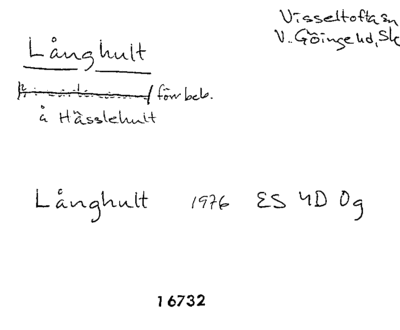 Visseltofta sn
V. Göinge hd, Sk
Långhult
förr beb.
å Hässlehult
Långhult 1976 ES 4D 0g
16732